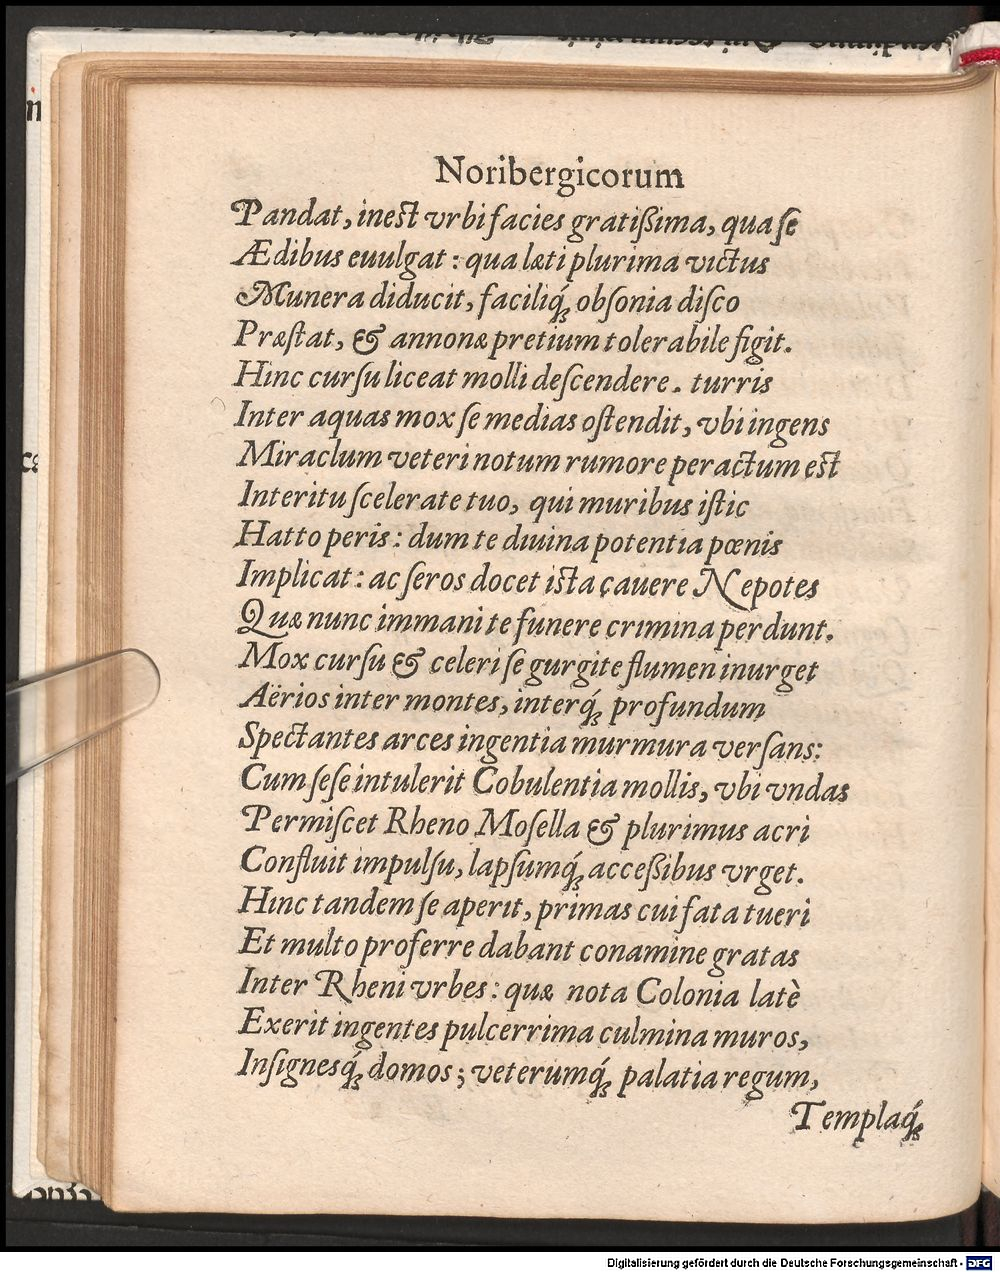 Noribergicorum
Pandat, inest vrbi facies gratißima, qua se
Ædibus euulgat: qua læti plurima victus
Munera diducit, faciliq́ꝫ obſonia diſco
Præſtat, & annonæ pretium tolerabile figit.
Hinc curſu liceat molli deſcendere. turris
Inter aquas mox ſe medias oſtendit, vbi ingens
Miraclum veteri notum rumore peractum est
Interitu ſcelerate tuo, qui muribus iſtic
Hatto peris: dum te diuina potentia pœnis
Implicat: ac ſeros docet ista cauere Nepotes
Quæ nunc immani te funere crimina perdunt.
Mox curſu & celeri ſe gurgite flumen inurget
Aërios inter montes, interq́ꝫ profundum
Spectantes arces ingentia murmura verſans:
Cum ſeſe intulerit Cobulentia mollis, vbi vndas
Permiſcet Rheno Moſella & plurimus acri
Confluit impulſu, lapſumq́ꝫ acceßibus vrget.
Hinc tandem ſe aperit, primas cui fata tueri
Et multo proferre dabant conamine gratas
Inter Rheni vrbes: quæ nota Colonia latè
Exerit ingentes pulcerrima culmina muros,
Inſignesq́ꝫ domos; veterumq́ꝫ palatia regum,
Templaq́ꝫ
Digitalisierung gefördert durch die Deutsche Forschungsgemeinschaft - DFG